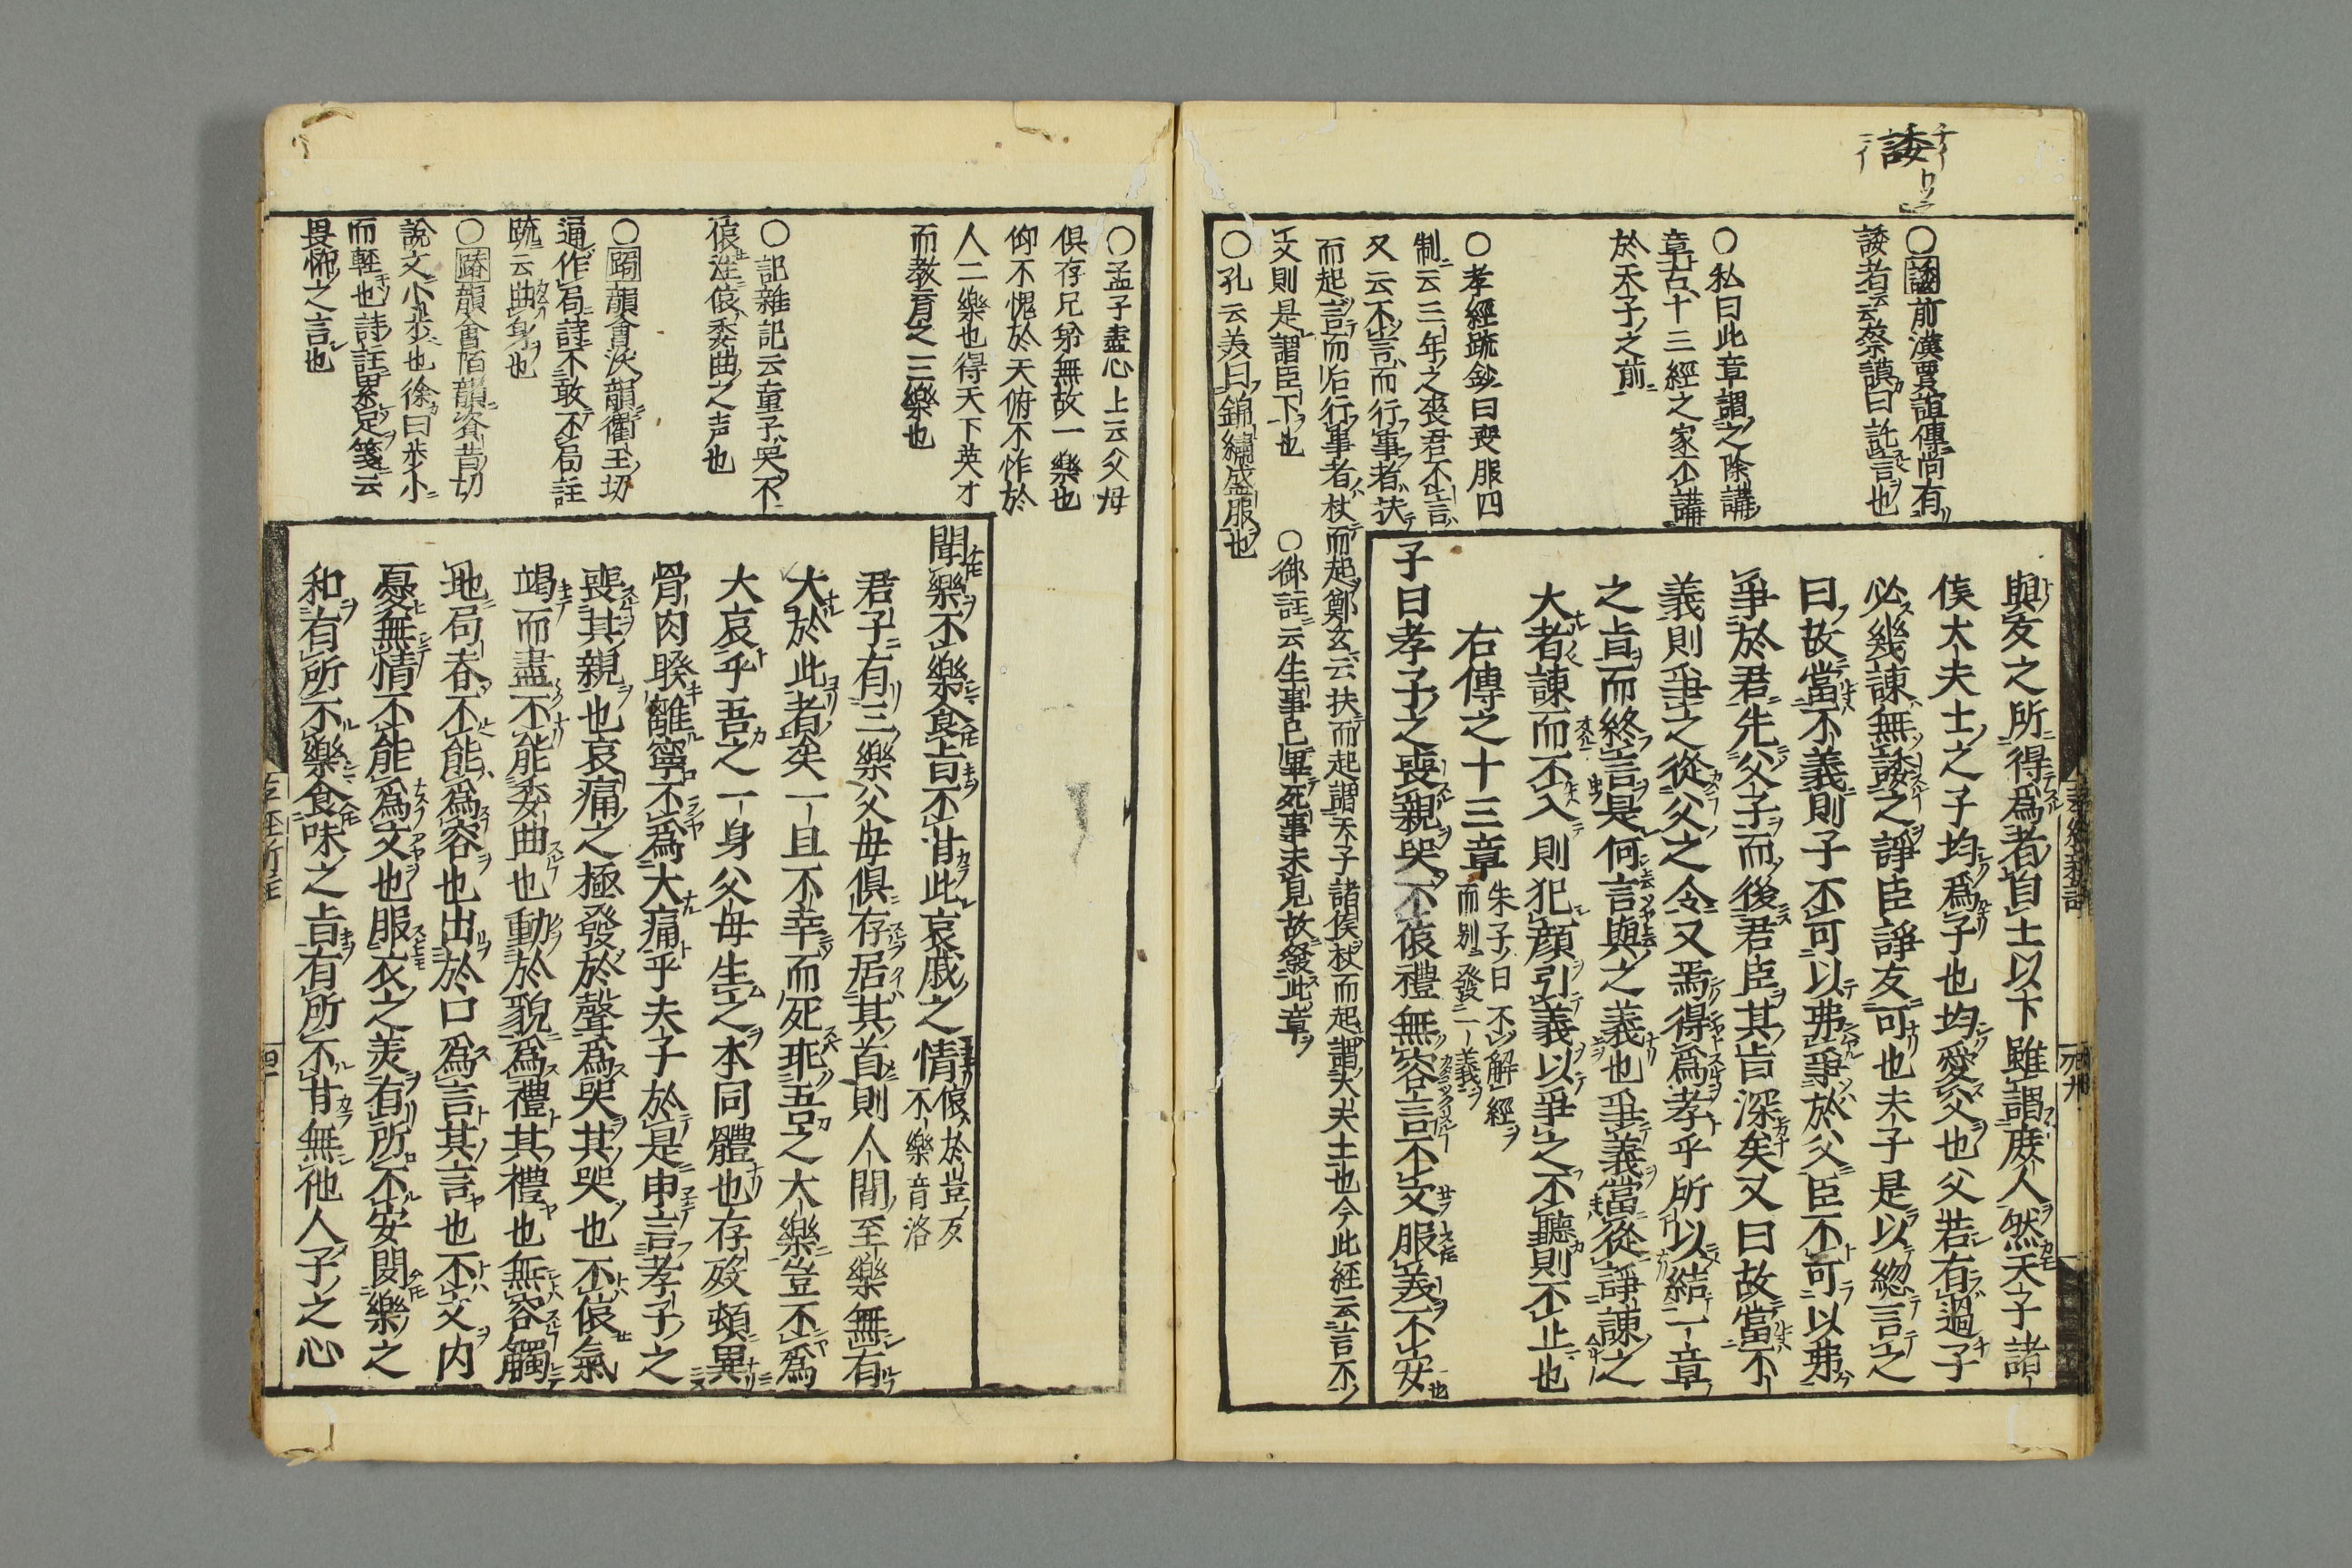 諉
○諉前漢賈誼傳尚有
諉者云蔡謨曰託言也
○私曰此章謂之除講
章古十三經之家不講
於天子之前
○孝經疏鈔曰喪服四
制云三年之喪君不言
又云不言而行事者扶
而起言而后行事者杖而起鄭玄云扶而起謂天子諸侯杖而起謂大夫士也今此經云言不
文則是謂臣下也
○御註云生事已畢死事未見故發此章
○孔云美曰錦繡盛服也
與友之所得爲者自士以下雖謂庶人然天子諸
侯大夫士之子均爲子也均愛父也父若有過子
必幾諫無諉之諍臣諍友可也夫子是以總言之
曰故當不義則子不可以弗爭於父臣不可以弗
爭於君先父子而後君臣其旨深矣又曰故當不
義則爭之從父之令又焉得爲孝乎所以結一章
之旨而終言是何言與之義也爭義當從諍諫之
大者諫而不入則犯顔引義以爭之不聽則不止也
右傳之十三章
朱子曰不解經
而別發一義
子曰孝子之喪親哭不偯禮無容言不文服美不安
○孟子盡心上云父母
俱存兄弟無故一樂也
仰不愧於天俯不怍於
人二樂也得天下英才
而教育之三樂也
○記雜記云童子哭不
偯註偯委曲之声也
○跼韻會沃韻衢玉切
通作局詩不敢不局註
疏云曲身也
○蹐韻會陌韻資昔切
說文小步也徐曰步小
而輕也詩註累足箋云
畏怖之言也
聞樂不樂食旨不甘此哀戚之情
偯於豈反
不樂音洛
君子有三樂父母俱存居其首則人間至樂無有
大於此者矣一旦不幸而死乖吾之大樂豈不爲
大哀乎吾之一身父母生之本同體也存歿頓異
骨肉睽離寧不爲大痛乎夫子於是申言孝子之
喪其親也哀痛之極發於聲爲哭其哭也不偯氣
竭而盡不能委曲也動於貌爲禮其禮也無容觸
地局舂不能爲容也出於口爲言其言也不文内
憂無情不能爲文也服衣之美有所不安聞樂之
和有所不樂食味之旨有所不甘無他人子之心